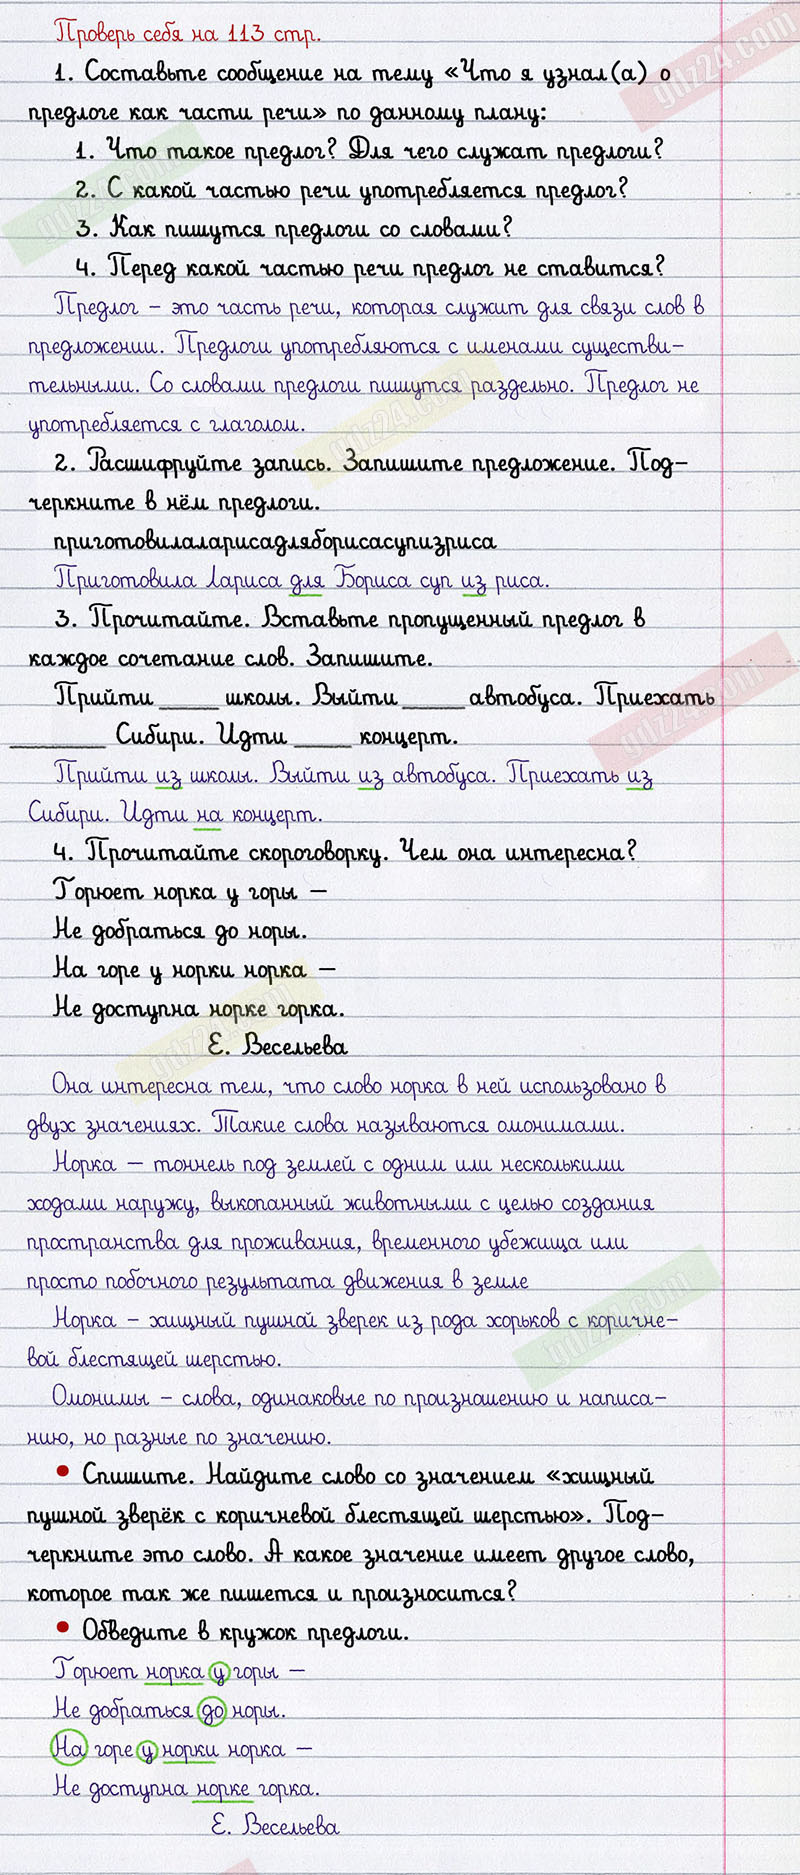 Проверь себя на 113 стр.
1. Составьте сообщение на тему «Что я узнал(а) о
предлоге как части речи» по данному плану:
1. Что такое предлог? Для чего служат предлоги?
2. С какой частью речи употребляется предлог?
3. Как пишутся предлоги со словами?
4. Перед какой частью речи предлог не ставится?
Предлог – это часть речи, которая служит для связи слов в
предложении. Предлоги употребляются с именами существи-
тельными. Со словами предлоги пишутся раздельно. Предлог не
употребляется с глаголом.
2. Расшифруйте запись. Запишите предложение. Под-
черкните в нём предлоги.
приготовилаларисадляборисасупизриса
Приготовила Лариса для Бориса суп из риса.
3. Прочитайте. Вставьте пропущенный предлог в
каждое сочетание слов. Запишите.
Прийти _____ школы. Выйти _____ автобуса. Приехать
________ Сибири. Идти _____ концерт.
Прийти из школы. Выйти из автобуса. Приехать из
Сибири. Идти на концерт.
4. Прочитайте скороговорку. Чем она интересна?
Горюет норка у горы –
Не добраться до норы.
На горе у норки норка –
Не доступна норке горка.
Е. Весельева
Она интересна тем, что слово норка в ней использовано в
двух значениях. Такие слова называются омонимами.
Норка – тоннель под землей с одним или несколькими
ходами наружу, выкопанный животными с целью создания
пространства для проживания, временного убежища или
просто побочного результата движения в земле
Норка – хищный пушной зверек из рода хорьков с коричне-
вой блестящей шерстью.
Омонимы – слова, одинаковые по произношению и написа-
нию, но разные по значению.
• Спишите. Найдите слово со значением «хищный
пушной зверёк с коричневой блестящей шерстью». Под-
черкните это слово. А какое значение имеет другое слово,
которое так же пишется и произносится?
• Обведите в кружок предлоги.
Горюет норка у горы –
Не добраться до норы.
На горе у норки норка –
Не доступна норке горка.
Е. Весельева
gdz24.com
gdz24.com
gdz24.com
gdz24.com
gdz24.com
gdz24.com